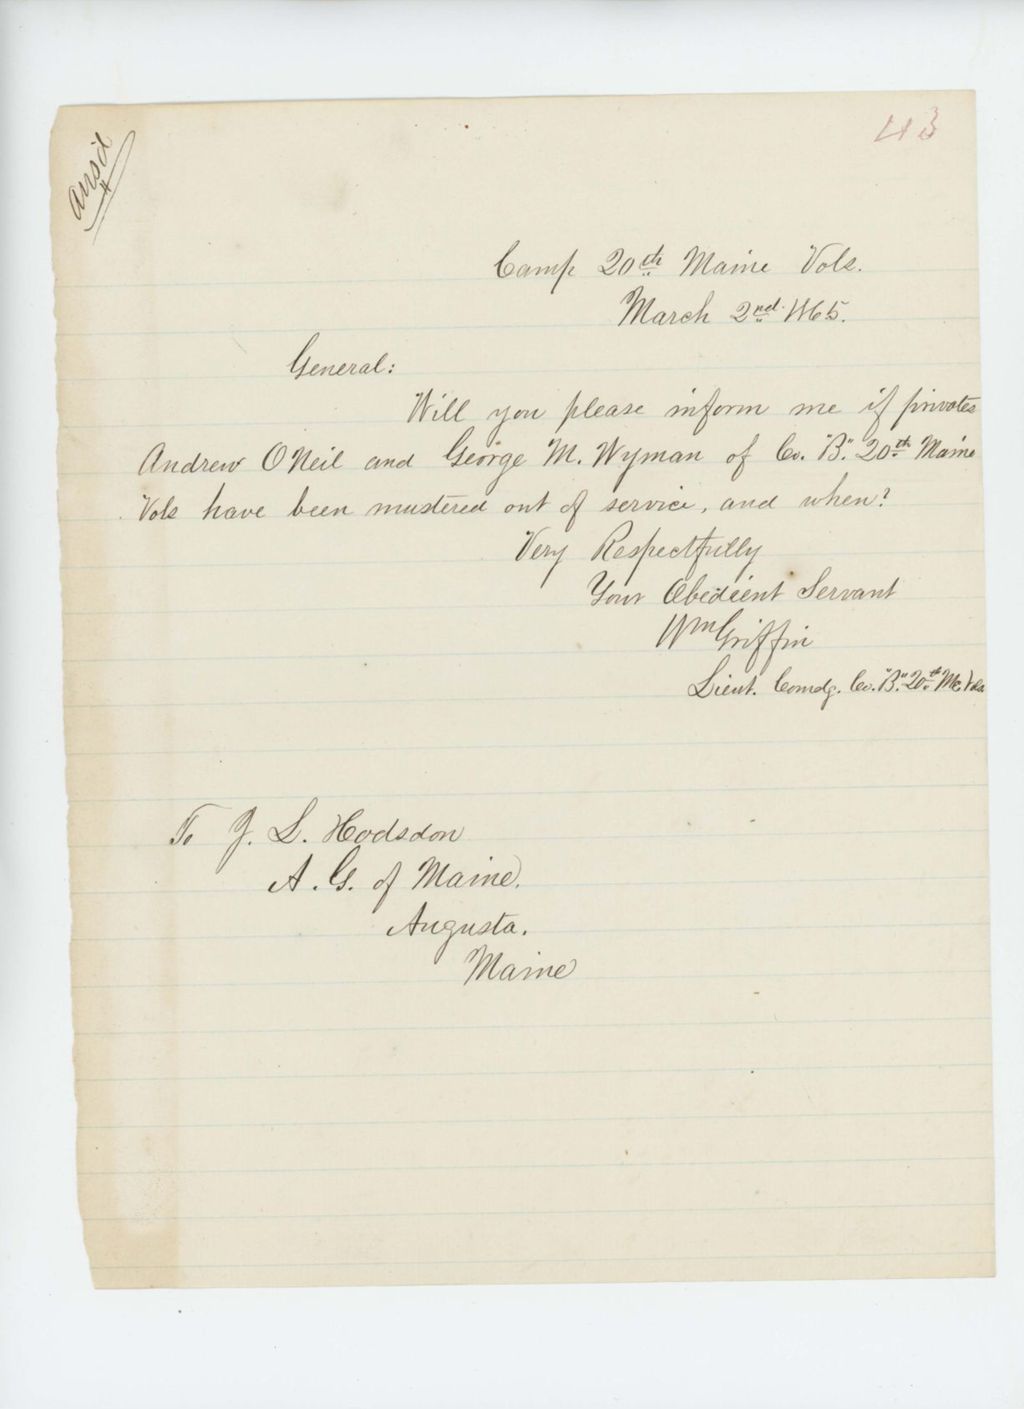 ansd
43
Camp 20th Maine Vols.
March 2nd 1865.
General:
Will you please inform me if privates
Andrew O'Neil and George M. Wyman of Co. "B." 20th Maine
Vols have been mustered out of service, and when?
Very Respectfully
Your Obedient Servant
Wm Griffin
Lieut. Comdg. Co. "B." 20th Me. Vols
To J. L. Hodsdon
A. G. of Maine.
Augusta.
Maine